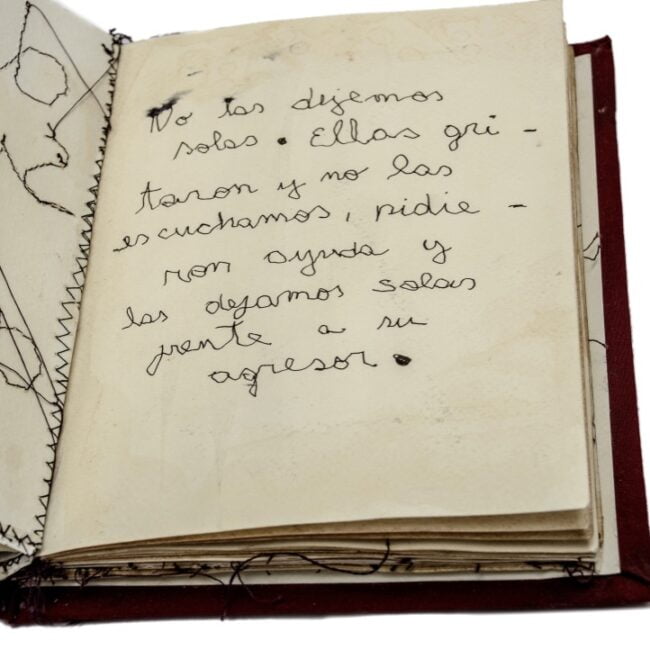 No las dejemos
solas. Ellas gri-
taron y no las
escuchamos, pidie-
ron ayuda y
las dejamos solas
frente a su
agresor.